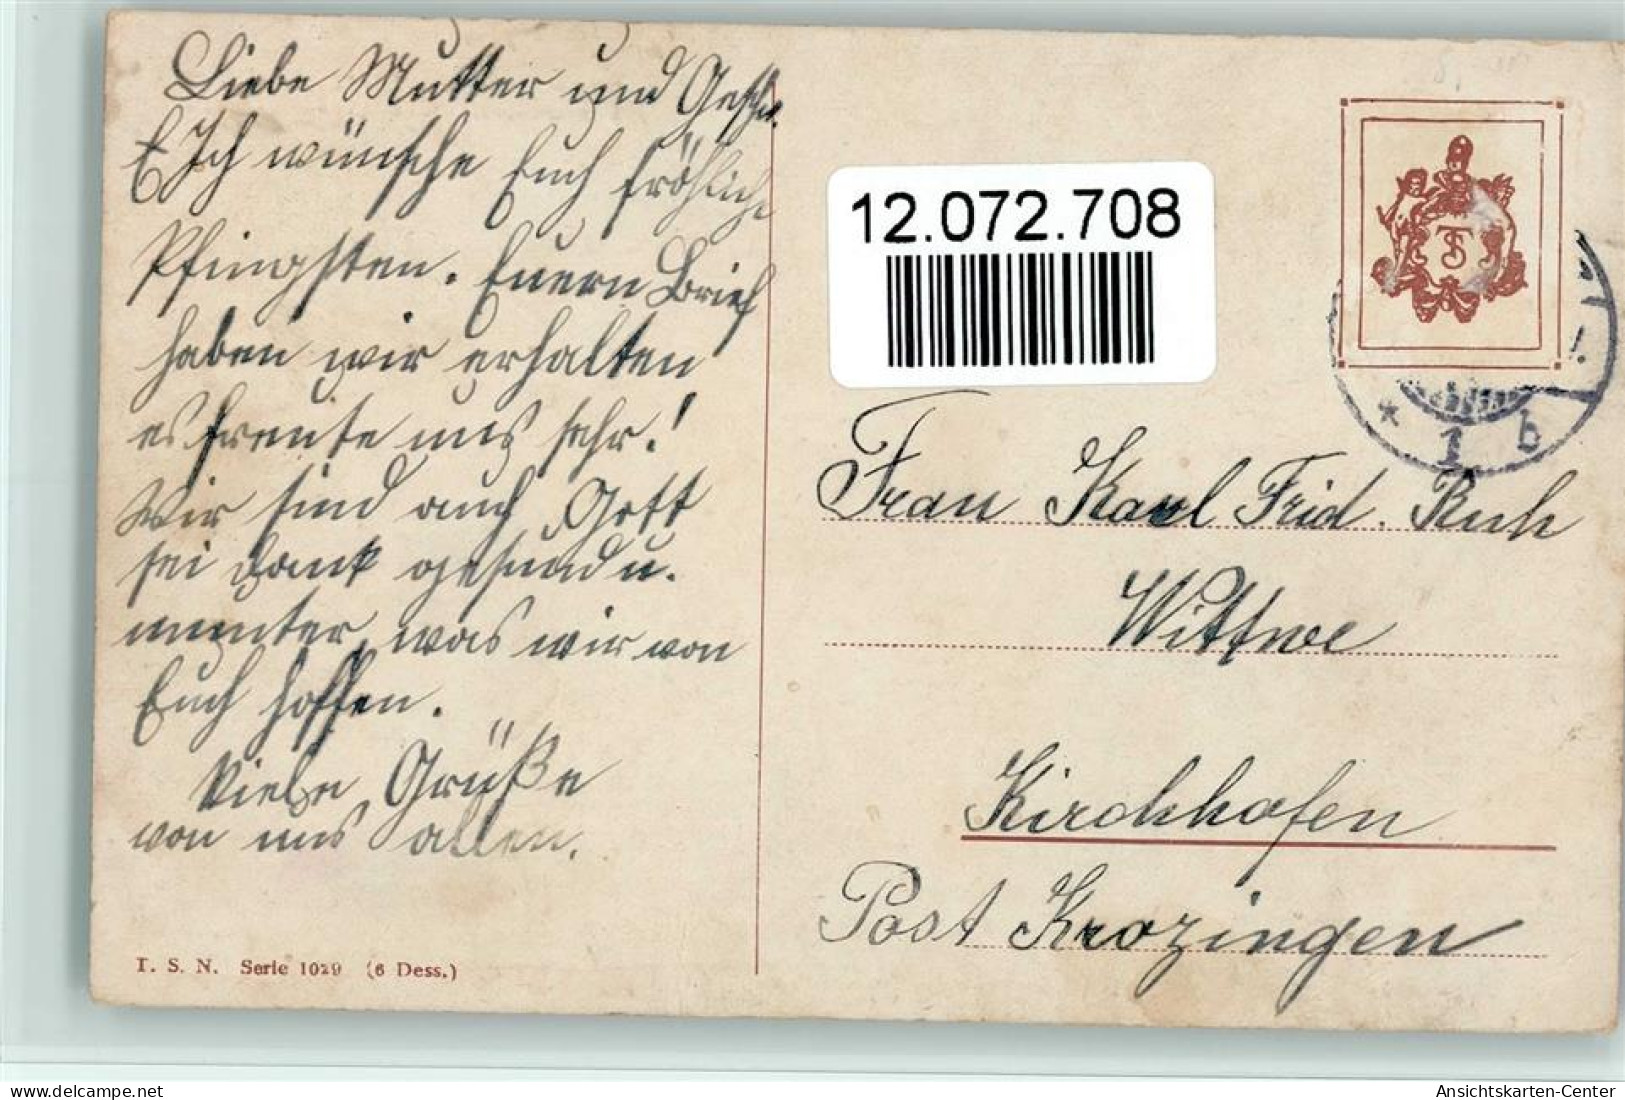 Liebe Mutter und Geschw.
Ich wünsche Euch fröhliche
Pfingsten. Euern Brief
haben wir erhalten
es freute uns sehr!
Wir sind auch Gott
sei Dank gesund u.
munter, was wir von
Euch hoffen.
Viele Grüße
von uns allen.
T. S. N. Serie 1029 (6 Dess.)
12.072.708
TSN
* 1 b
Frau Karl Frid. Ruh
Wittwe
Kirchhofen
Post Krozingen
oldthing.de
Ansichtskarten-Center